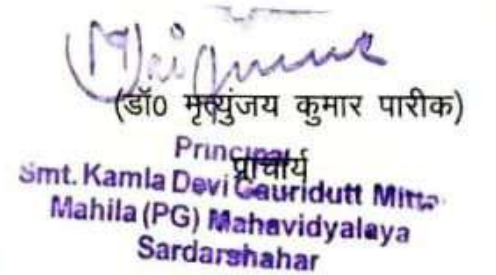 (डॉ0 मृत्युंजय कुमार पारीक)
प्राचार्य
Principal
Smt. Kamla Devi Gauridutt Mittal
Mahila (PG) Mahavidyalaya
Sardarshahar